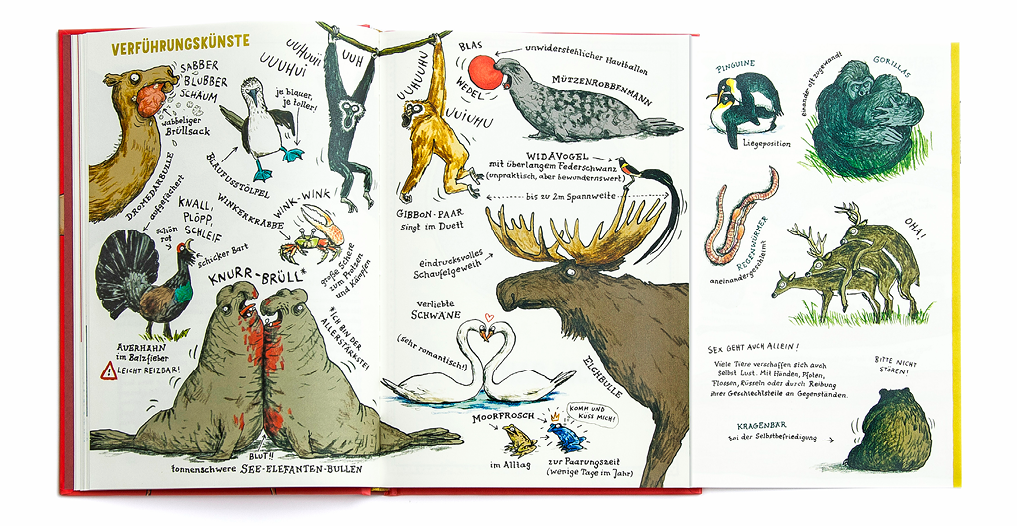 VERFÜHRUNGSKÜNSTE
SABBER
BLUBBER
SCHAUM
wabbeliger
Brüllsack
DROMEDARBULLE
je blauer,
je toller!
BLAUFUSSTÖLPEL
UUHUUII
UUUHUI
UUH
UUHUUHU
UUIUHU
GIBBON-PAAR
singt im Duett
BLAS
WEDEL
unwiderstehlicher Hautballon
MÜTZENROBBENMANN
WIDAVOGEL
mit überlangem Federschwanz
(unpraktisch, aber bewundernswert)
aufgefächert
KNALL,
PLÖPP,
SCHLEIF
schön
rot
schicker Bart
AUERHAHN
im Balzfieber
LEICHT REIZBAR!
WINKERKRABBE
WINK-WINK
große Schere
zum Protzen
und Kämpfen
KNURR-BRÜLL*
*ICH BIN DER
ALLERSTÄRKSTE!
BLUT!!
tonnenschwere SEE-ELEFANTEN-BULLEN
bis zu 2m Spannweite
eindrucksvolles
Schaufelgeweih
ELCHBULLE
verliebte
SCHWÄNE
(sehr romantisch!)
MOORFROSCH
im Alltag
KOMM UND
KÜSS MICH!
zur Paarungszeit
(wenige Tage im Jahr)
PINGUINE
Liegeposition
einander oft zugewandt
GORILLAS
REGENWÜRMER
aneinandergeschleimt
OHA!
SEX GEHT AUCH ALLEIN!
Viele Tiere verschaffen sich auch
selbst Lust. Mit Händen, Pfoten,
Flossen, Rüsseln oder durch Reibung
ihrer Geschlechtsteile an Gegenständen.
BITTE NICHT
STÖREN!
KRAGENBÄR
bei der Selbstbefriedigung